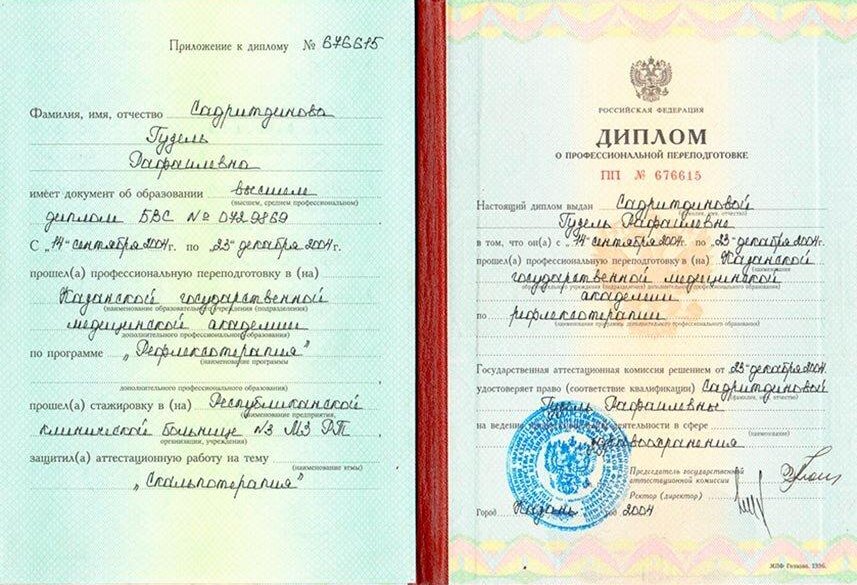 Приложение к диплому № 676615
Фамилия, имя, отчество Садритдинова
Гузель
Рафаилевна
имеет документ об образовании высшем
(высшем, среднем профессиональном)
диплом БВС № 0729869
С „14" сентября 2004 г. по „23" декабря 2004 г.
прошел(а) профессиональную переподготовку в (на)
Казанской государственной
(наименование образовательного учреждения (подразделения)
медицинской академии
дополнительного профессионального образования)
по программе „Рефлексотерапия"
(наименование программы
дополнительного профессионального образования)
прошел(а) стажировку в (на) Республиканской
(наименование предприятия,
клинической больнице №3 МЗ РТ
организации, учреждения)
защитил(а) аттестационную работу на тему
(наименование темы)
„Скальпотерапия"
РОССИЙСКАЯ ФЕДЕРАЦИЯ
ДИПЛОМ
О ПРОФЕССИОНАЛЬНОЙ ПЕРЕПОДГОТОВКЕ
ПП № 676615
Настоящий диплом выдан Садритдиновой
(фамилия, имя, отчество)
Гузель Рафаилевне
в том, что он(а) с „14" сентября 2004 г. по „23" декабря 2004 г.
прошел(а) профессиональную переподготовку в (на) Казанской
(наименование
государственной медицинской
образовательного учреждения (подразделения) дополнительного профессионального образования)
академии
по рефлексотерапии
(наименование программы дополнительного профессионального образования)
Государственная аттестационная комиссия решением от 23 декабря 2004
удостоверяет право (соответствие квалификации) Садритдиновой
(фамилия, имя, отчество)
Гузель Рафаилевны
на ведение деятельности в сфере
(наименование)
здравоохранения
Председатель государственной
аттестационной комиссии
Ректор (директор)
Город Казань год 2004
МПФ Гознака. 1996.